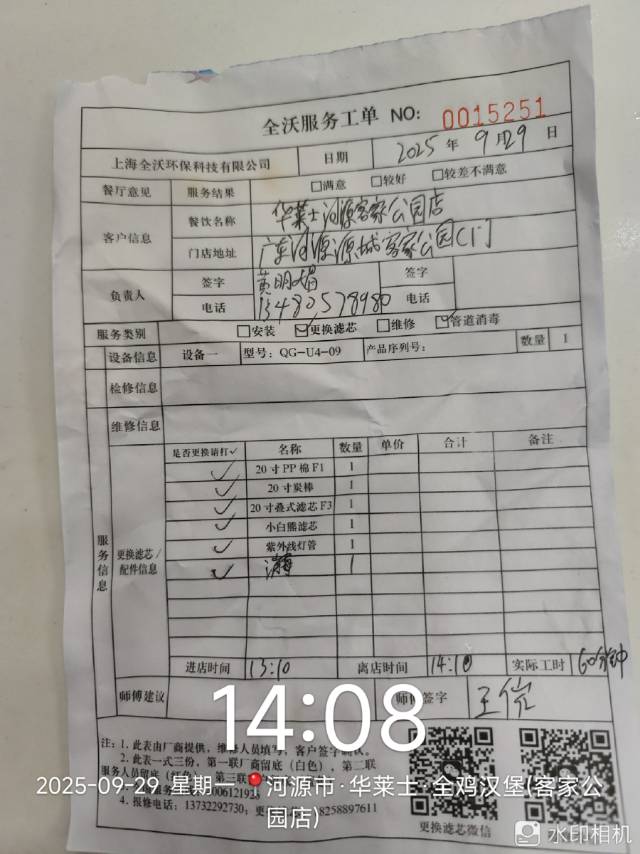 全沃服务工单 NO: 0015251
上海全沃环保科技有限公司 日期 2025 年 9月29 日
餐厅意见 服务结果 □满意 □较好 □较差不满意
客户信息 餐饮名称 华莱士河源客家公园店
门店地址 广东河源源城客家公园C1门
负责人 签字 黄明娟 签字
电话 13480578980 电话
服务类别 □安装 ☑更换滤芯 □维修 ☑管道消毒
设备信息 设备一 型号: QG-U4-09 产品序列号: 数量 1
检修信息
维修信息
服务信息
更换滤芯/配件信息
是否更换请打✓ 名称 数量 单价 合计 备注
✓ 20寸PP棉F1 1
✓ 20寸炭棒 1
✓ 20寸叠式滤芯F3 1
✓ 小白熊滤芯 1
✓ 紫外线灯管 1
✓ 1
进店时间 13:10 离店时间 14:10 实际工时 60分钟
师傅建议 师傅签字
14:08
注: 1. 此表由厂商提供, 维修人员填写, 客户签字确认。
2. 此表一式三份, 第一联厂商留底 (白色), 第二联
服务人员留底 (红色), 第三联
2025-09-29 星期一 河源市·华莱士·全鸡汉堡(客家公
园店)
4. 报修电话: 13732292730; 18258897611
更换滤芯微信
水印相机